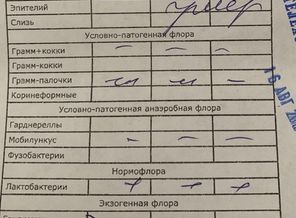 Эпителий
Слизь
Условно-патогенная флора
Грамм+кокки — — —
Грамм-кокки
Грамм-палочки
Коринеформные
Условно-патогенная анаэробная флора
Гарднереллы
Мобилункус - — —
Фузобактерии
Нормофлора
Лактобактерии + + +
Экзогенная флора
16 АВГ